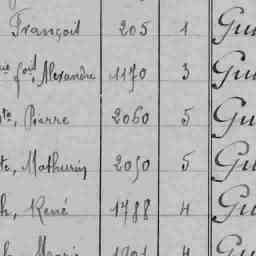 François 205 1 Gu
Alexandre 1170 3 Gu
Pierre 2060 5 Gu
Mathurin 2050 5 Gu
h, René 1788 4 Gu